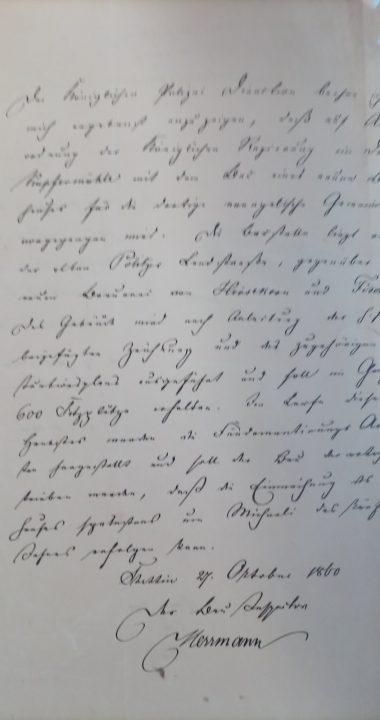 Der Königlichen Polizei Direction beehre
mich ergebenst anzuzeigen, daß auf
ordnung der Königlichen Regierung in
Kupfermühle mit dem Bau eines neuen
hauses für die dortige evangelische Gemein
vorgegangen wird. Die Baustelle liegt
der alten Pölitzer Landstraße, gegenüber
neuen Brauerei von und
Das Gebäude wird nach Anleitung der
beigefügten Zeichnung und des zugehörigen
ausgeführt und soll im
600 Sitzplätze erhalten. Im Laufe dieses
Herbstes werden die Fundamentirungs
ten hergestellt und soll der Bau derart
trieben werden, daß die Einweihung des
hauses spätestens um Michaeli des
Jahres erfolgen kann.
Stettin 27. Oktober 1860
Der Bau Inspektor
Herrmann